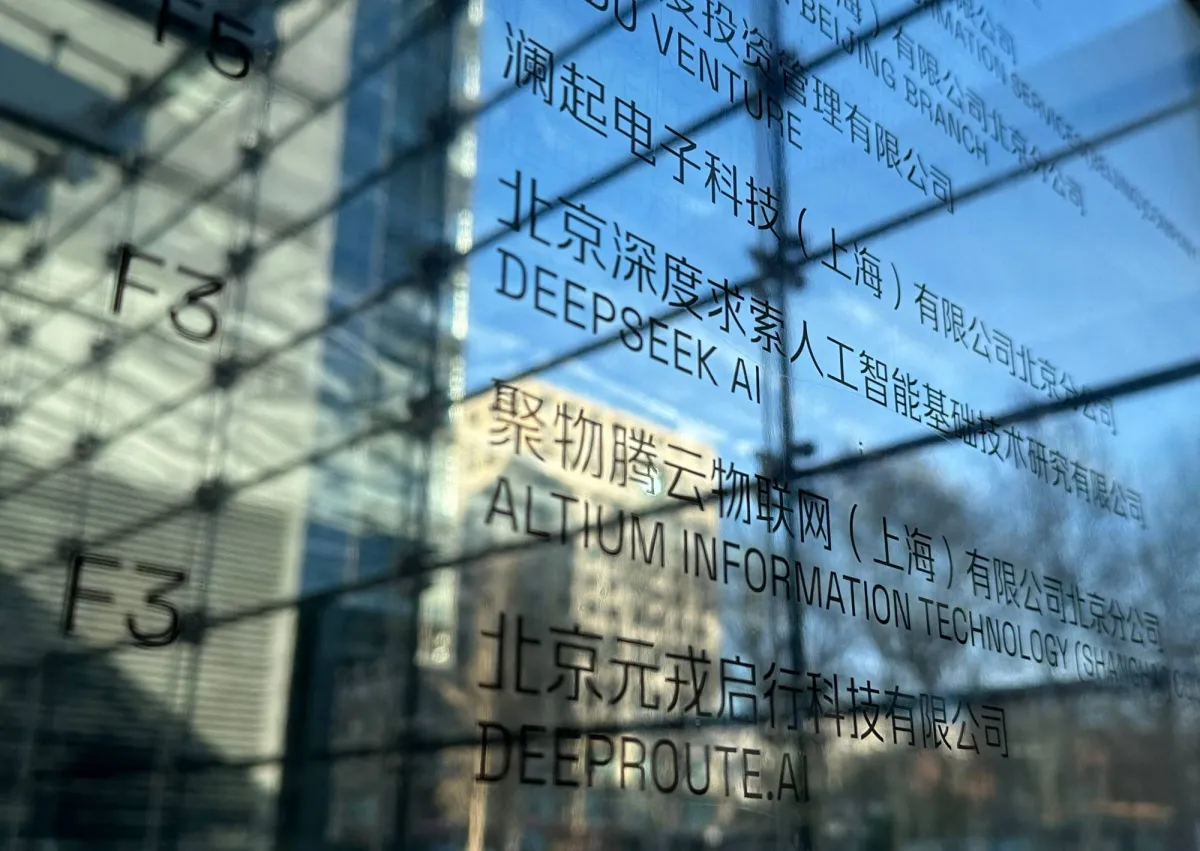 F5
息有限公司
度投资管理有限公司
DU VENTURE
海）有限公司北京分公司
BEIJING BRANCH
澜起电子科技（上海）有限公司北京分公司
F3
北京深度求索人工智能基础技术研究有限公司
DEEPSEEK AI
聚物腾云物联网（上海）有限公司北京分公司
ALTIUM INFORMATION TECHNOLOGY (SHANGHAI)
F3
北京元戎启行科技有限公司
DEEPROUTE.AI